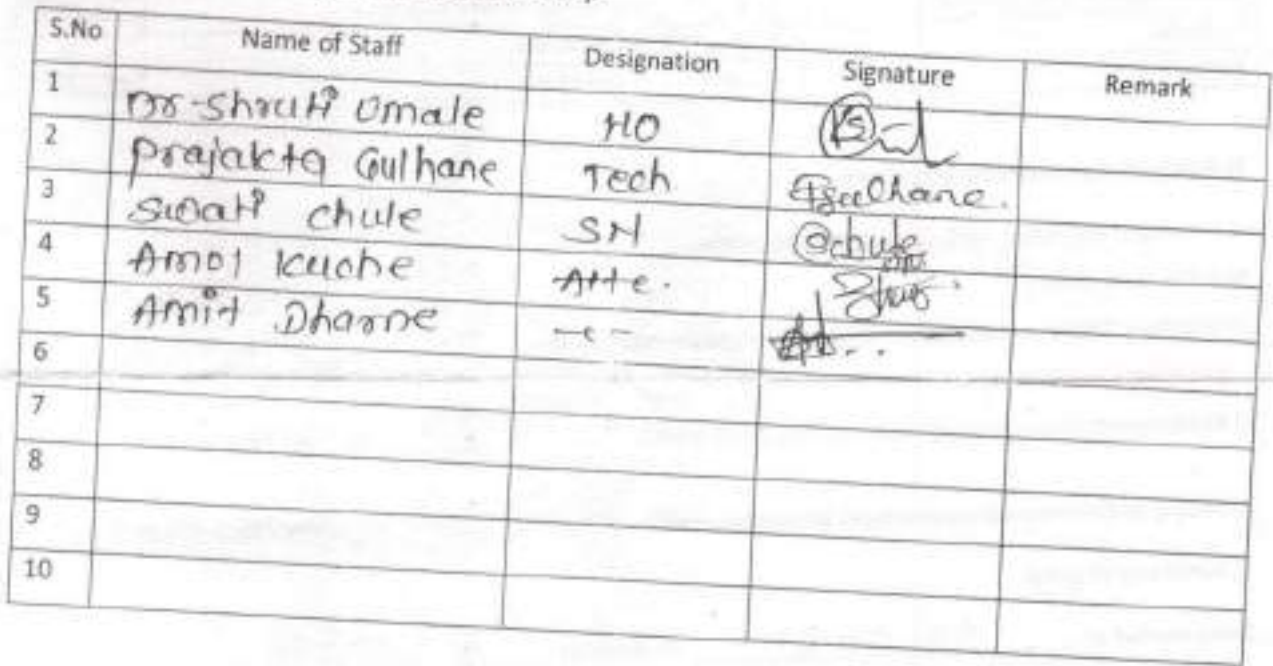 S.No Name of Staff Designation Signature Remark
1 Dr-Shruti Umale MO
2 Prajakta Gulhane Tech Gulhane.
3 Swati chule SN chule
4 Amol Kuche Atte.
5 Amit Dharne -〃-
6
7
8
9
10